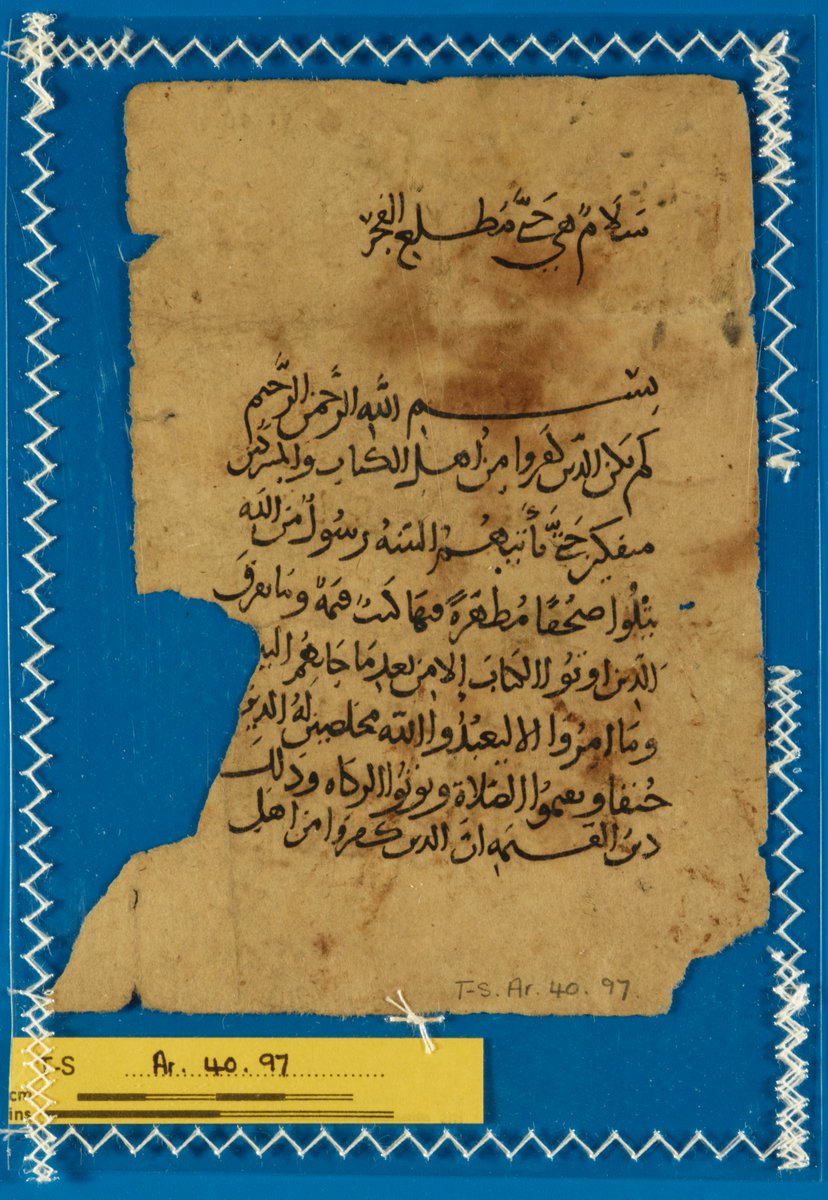 سَلَامٌ هي حَتَّى مَطلـــع الفجر
بِســـــم اللَّه الرَّحمن الرَّحيم
لم يَكن الذّين كفروا مِن اهلِ الكتاب والمشركين
منفكين حَتَّى تأتيهُم البينهُ رسُولٌ مِنَ اللَّه
يتْلُوا صحُفًا مُطهَرَةً فيها كتبٌ قيمَةٌ وَمَا تفرق
الّذين اوتوُا الكتابَ إلا مِن بعدِ مَا جَاتهُم البي
ومَا امرُوا الا ليعبدُوا اللَّه مخلصين لهُ الدين
حُنفا ويقيموُا الصّلاة ويوتوُا الزكاه وَذلكَ
دينَ القيمه انّ الدين كفروا من اهلِ
T-S. Ar. 40. 97
T-S Ar. 40.97
cm
ins